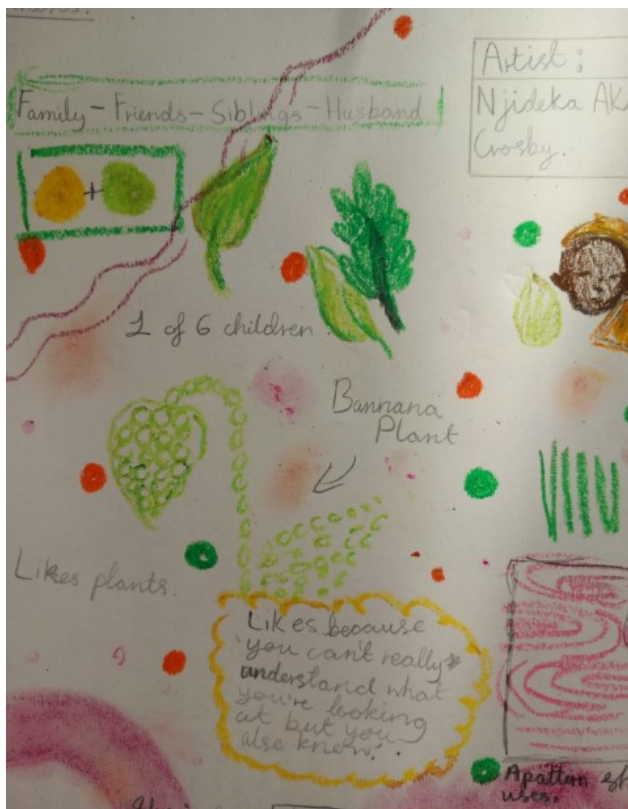 Artist :
Family - Friends - Siblings - Husband
Njideka AK
Crosby.
+
1 of 6 children
Bannana
Plant
Likes plants.
Likes because
'you can't really
understand what
you're looking
at but you
also know.'
A pattern sh
uses.